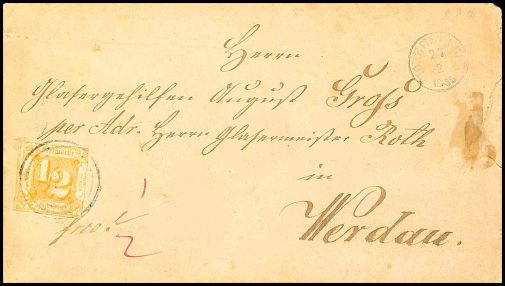 Herrn
Glasergehilfen August Gross
per Adr. Herrn Glasermeister Roth
in
Werdau.
1/2
1/2